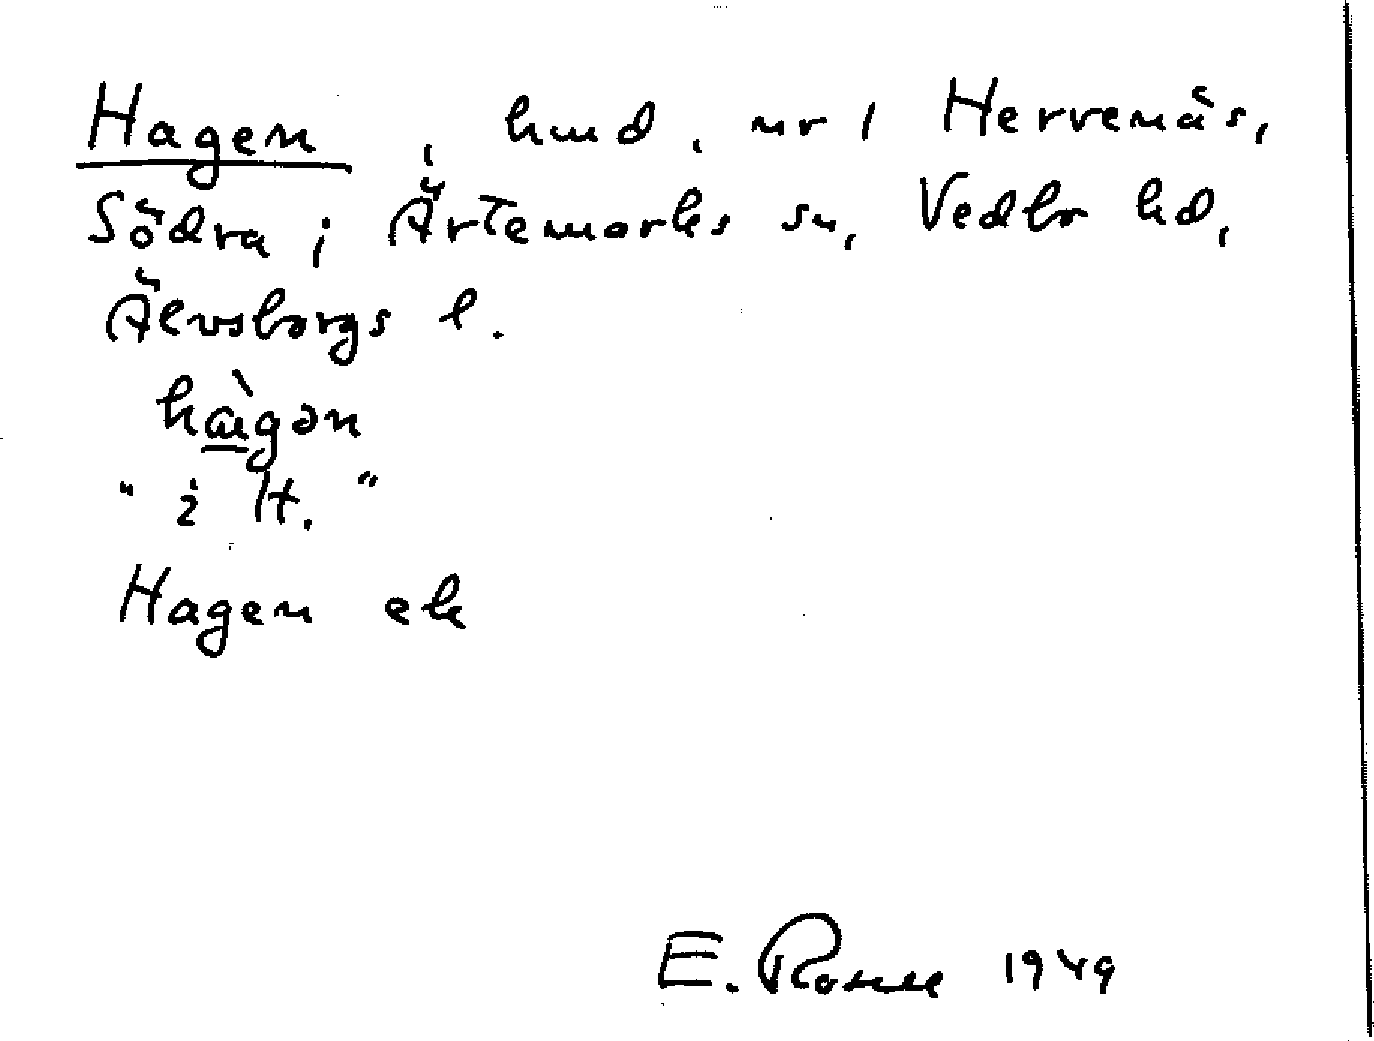 Hagen, hmd, nr 1 Hervenäs,
Södra i Ärtemarks sn, Vedbo hd,
Älvsborgs l.
hàgən
" i H. "
Hagen ek
E. 1949